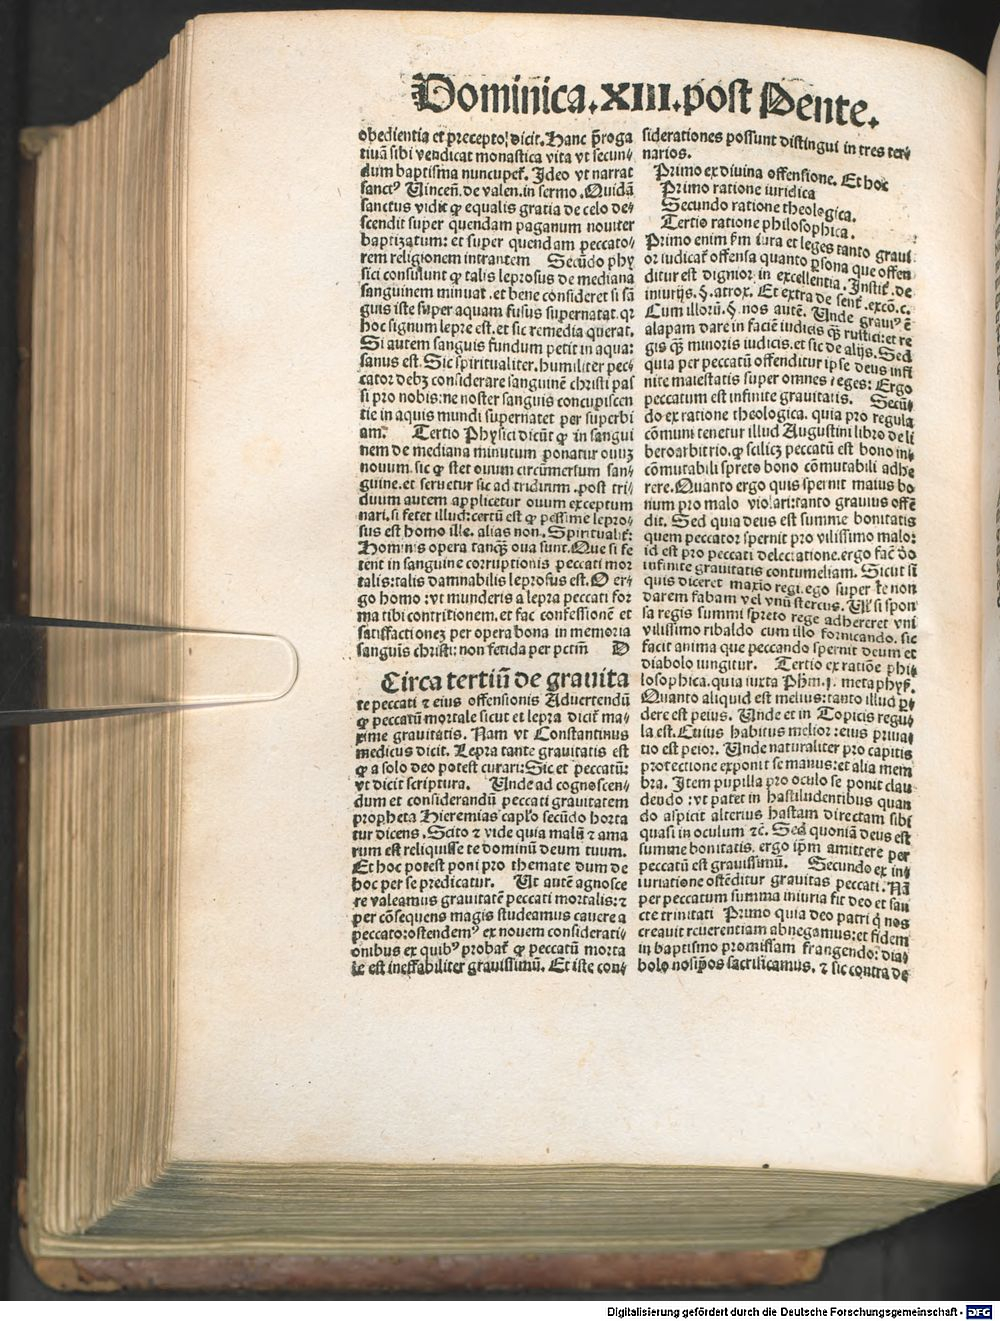 Dominica.XIII.post Pente.
obedientia et precepto, dicit. Hanc p̄roga
tiuā sibi vendicat monastica vita vt secun⸗
dum baptisma nuncupet̄. Ideo vt narrat
sanctꝰ Uincen̄. de valen. in sermo. Quidā
sanctus vidit ꝙ equalis gratia de celo de⸗
scendit super quendam paganum nouiter
baptizatum: et super quendam peccato⸗
rem religionem intrantem Secūdo phy
sici consulunt ꝙ talis leprosus de mediana
sanguinem minuat. et bene consideret si sā
guis iste super aquam fusus supernatat. qꝛ
hoc signum lepre est. et sic remedia querat.
Si autem sanguis fundum petit in aqua:
sanus est. Sic spiritualiter. humiliter pec⸗
cator debꝫ considerare sanguinē christi pas
si pro nobis: ne noster sanguis concupiscen
tie in aquis mundi supernatet per superbi
am. Tertio Physici dicūt ꝙ in sangui
nem de mediana minutum ponatur ouuꝫ
nouum. sic ꝙ stet ouum circūmersum san⸗
guine. et seruetur sic ad triduum. post tri⸗
duum autem applicetur ouum exceptum
nari. si fetet illud: certū est ꝙ pessime lepro⸗
sus est homo ille. alias non. Spiritualit̄:
Hominis opera tanqꝫ oua sunt. Que si fe
tent in sanguine corruptionis peccati mor
talis: talis damnabilis leprosus est. O er⸗
go homo: vt munderis a lepra peccati for
ma tibi contritionem. et fac confessionē et
satisfactionez per opera bona in memoria
sanguis christi: non fetida per pctm̄ D
Circa tertiū de grauita
te peccati ⁊ eius offensionis Aduertendū
ꝙ peccatū mortale sicut et lepra dicit̄ ma⸗
xime grauitatis. Nam vt Constantinus
medicus dicit. Lepra tante grauitatis est
ꝙ a solo deo potest curari: Sic et peccatū:
vt dicit scriptura. Unde ad cognoscen⸗
dum et considerandū peccati grauitatem
propheta Hieremias cap̄lo secūdo horta
tur dicens. Scito ⁊ vide quia malū ⁊ ama
rum est reliquisse te dominū deum tuum.
Et hoc potest poni pro themate dum de
hoc per se predicatur. Ut autē agnosce
re valeamus grauitatē peccati mortalis: ⁊
per cōsequens magis studeamus cauere a
peccato: ostendemꝰ ex nouem considerati⸗
onibus ex quibꝰ probat̄ ꝙ peccatū morta
le est ineffabiliter grauissimū. Et iste con⸗
siderationes possunt distingui in tres ter⸗
narios.
Primo ex diuina offensione. Et hoc
Primo ratione iuridica
Secundo ratione theologica.
Tertio ratione philosophica.
Primo enim s̄m iura et leges tanto graui
or iudicat̄ offensa quanto ꝑsona que offen
ditur est dignior in excellentia. Instit̄. de
iniurijs. §. atrox. Et extra de sent̄. excō. c.
Cum illorū. §. nos autē. Unde grauiꝰ ē
alapam dare in faciē iudicis qꝫ rustici: et re
gis qꝫ minoris iudicis. et sic de alijs. Sed
quia per peccatū offenditur ipse deus infi
nite maiestatis super omnes reges: Ergo
peccatum est infinite grauitatis. Secū⸗
do ex ratione theologica. quia pro regula
cōmuni tenetur illud Augustini libro de li
bero arbitrio. ꝙ scilicꝫ peccatū est bono in⸗
cōmutabili spreto bono cōmutabili adhe
rere. Quanto ergo quis spernit maius bo
num pro malo viliori: tanto grauius offē
dit. Sed quia deus est summe bonitatis
quem peccator spernit pro vilissimo malo:
id est pro peccati delectatione. ergo fac̄ dō
infinite grauitatis contumeliam. Sicut si
quis diceret maxīo regi. ego super te non
darem fabam vel vnū stercus. Ul̄ si spon
sa regis summi spreto rege adhereret vni
vilissimo ribaldo cum illo fornicando. sic
facit anima que peccando spernit deum et
diabolo iungitur. Tertio ex ratiōe phi⸗
losophica. quia iuxta Ph̄m. j. metaphyꝭ.
Quanto aliquid est melius: tanto illud ꝑ⸗
dere est peius. Unde et in Topicis regu⸗
la est. Cuius habitus melior: eius priua⸗
tio est peior. Unde naturaliter pro capitis
protectione exponit se manus: et alia mem
bra. Item pupilla pro oculo se ponit clau
dendo: vt patet in hastiludentibus quan
do aspicit alterius hastam directam sibi
quasi in oculum ⁊c̄. Sed quoniā deus est
summe bonitatis. ergo ip̄m amittere per
peccatū est grauissimū. Secundo ex in⸗
iuriatione ostēditur grauitas peccati. Nā
per peccatum summa iniuria fit deo et san
cte trinitati Primo quia deo patri q̄ nos
creauit reuerentiam abnegamus: et fidem
in baptismo promissam frangendo: dia⸗
bolo nosip̄os sacrificamus. ⁊ sic contra de
Digitalisierung gefördert durch die Deutsche Forschungsgemeinschaft - DFG